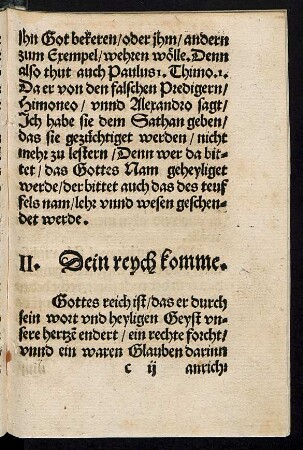 Ihn Got bekeren/oder jhm/andern
zum Exempel/wehren wölle. Denn
also thut auch Paulus 1. Thimo. 1.
Da er von den falschen Predigern/
Himoneo/ vnnd Alexandro sagt/
Ich habe sie dem Sathan geben/
das sie gezüchtiget werden/ nicht
mehr zu lestern/ Denn wer da bit-
tet/ das Gottes Nam geheyliget
werde/der bittet auch das des teuf
fels nam/lehr vnnd wesen geschen-
det werde.
II. Dein reych komme.
Gottes reich ist/das er durch
sein wort vnd heyligen Geyst vn-
sere hertzẽ endert/ ein rechte forcht/
vnnd ein waren Glauben darinn
c ij anrich-